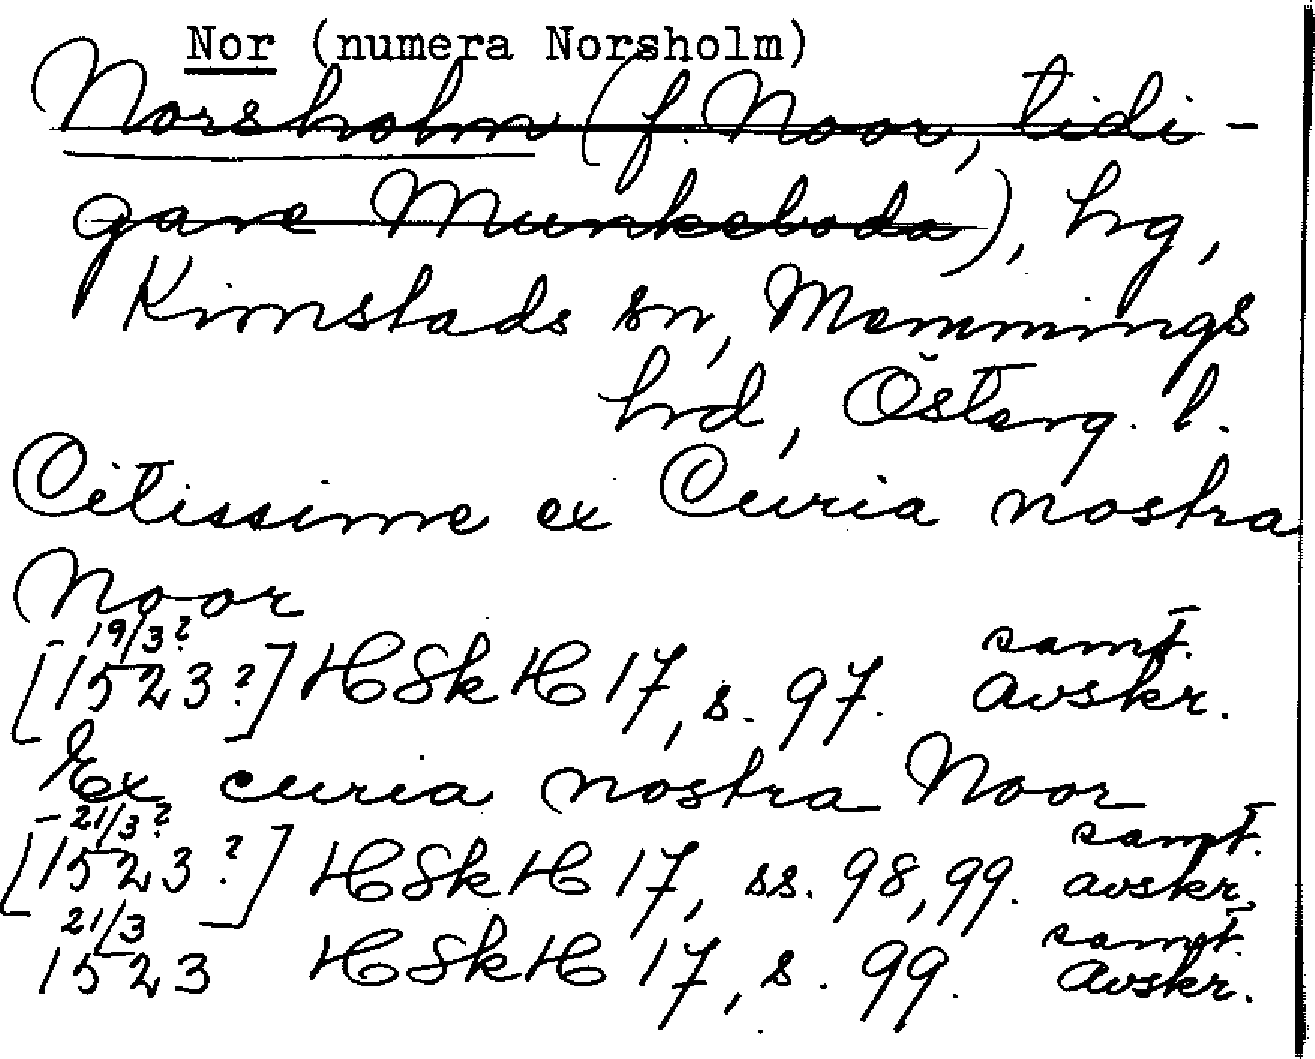 Nor (numera Norsholm)
Norsholm (f. Noor, tidi-
gare Munkeboda), hg,
Kimstads sn, Memmings
hd, Österg. l.
Citissime ex Curia nostra
Noor
19/3?
[1523?] HSkH 17, s. 97. samt. avskr.
Ex curia nostra Noor
21/3?
[1523?] HSkH 17, ss. 98, 99. samt. avskr.
21/3
1523 HSkH 17, s. 99. samt. avskr.